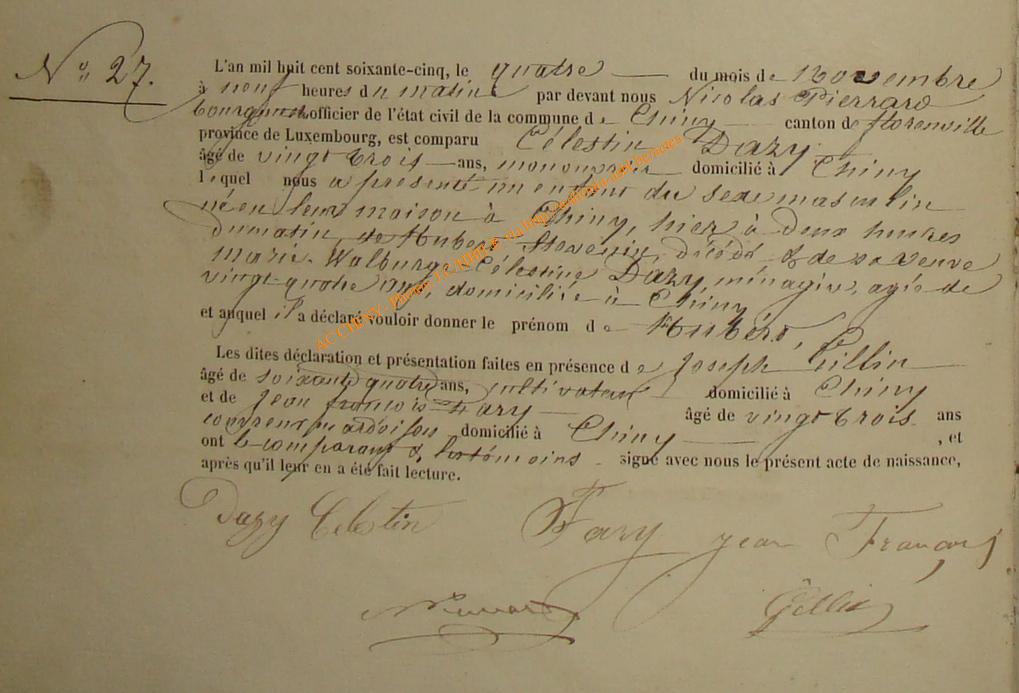 No 27.
L'an mil huit cent soixante-cinq, le quatre du mois de Novembre
à neuf heures du matin par devant nous Nicolas Pierrard
bourgmestre officier de l'état civil de la commune de Chiny canton de florenville
province de Luxembourg, est comparu Célestin Dazy
âgé de vingt trois ans, manouvrier domicilié à Chiny
lequel nous a présenté un enfant du sexe masculin
né en leur maison à Chiny, hier à deux heures
du matin, de Hubert décédé & de sa veuve
marie Walburge Célestine Dazy, ménagère, agée de
vingt quatre ans, domicilié à Chiny
et auquel il a déclaré vouloir donner le prénom de Hubert,
Les dites déclaration et présentation faites en présence de Joseph Gillin
âgé de soixante quatre ans, cultivateur domicilié à Chiny
et de Jean françois Fary âgé de vingt trois ans
couvreur en ardoises domicilié à Chiny , et
ont le comparant & les témoins signé avec nous le présent acte de naissance,
après qu'il leur en a été fait lecture.
Dazy Celestin Fary jean François
NPierrard Gillin
AC CHINY Photos